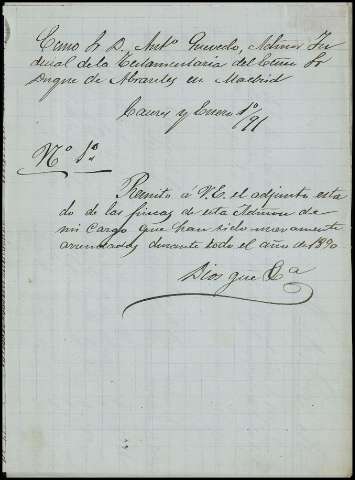 Exmo Sr D. Antº Quevedo, Admor Ju
dicial de la Testamentaria del Exmo Sr
Duque de Abrantes en Madrid
Caceres y Enero 1º/91
Nº 1º
Remito á V.E. el adjunto esta
do de las fincas de esta Admon de
mi cargo que han sido nuevamente
arrendadas durante todo el año de 1890
Dios gue &a